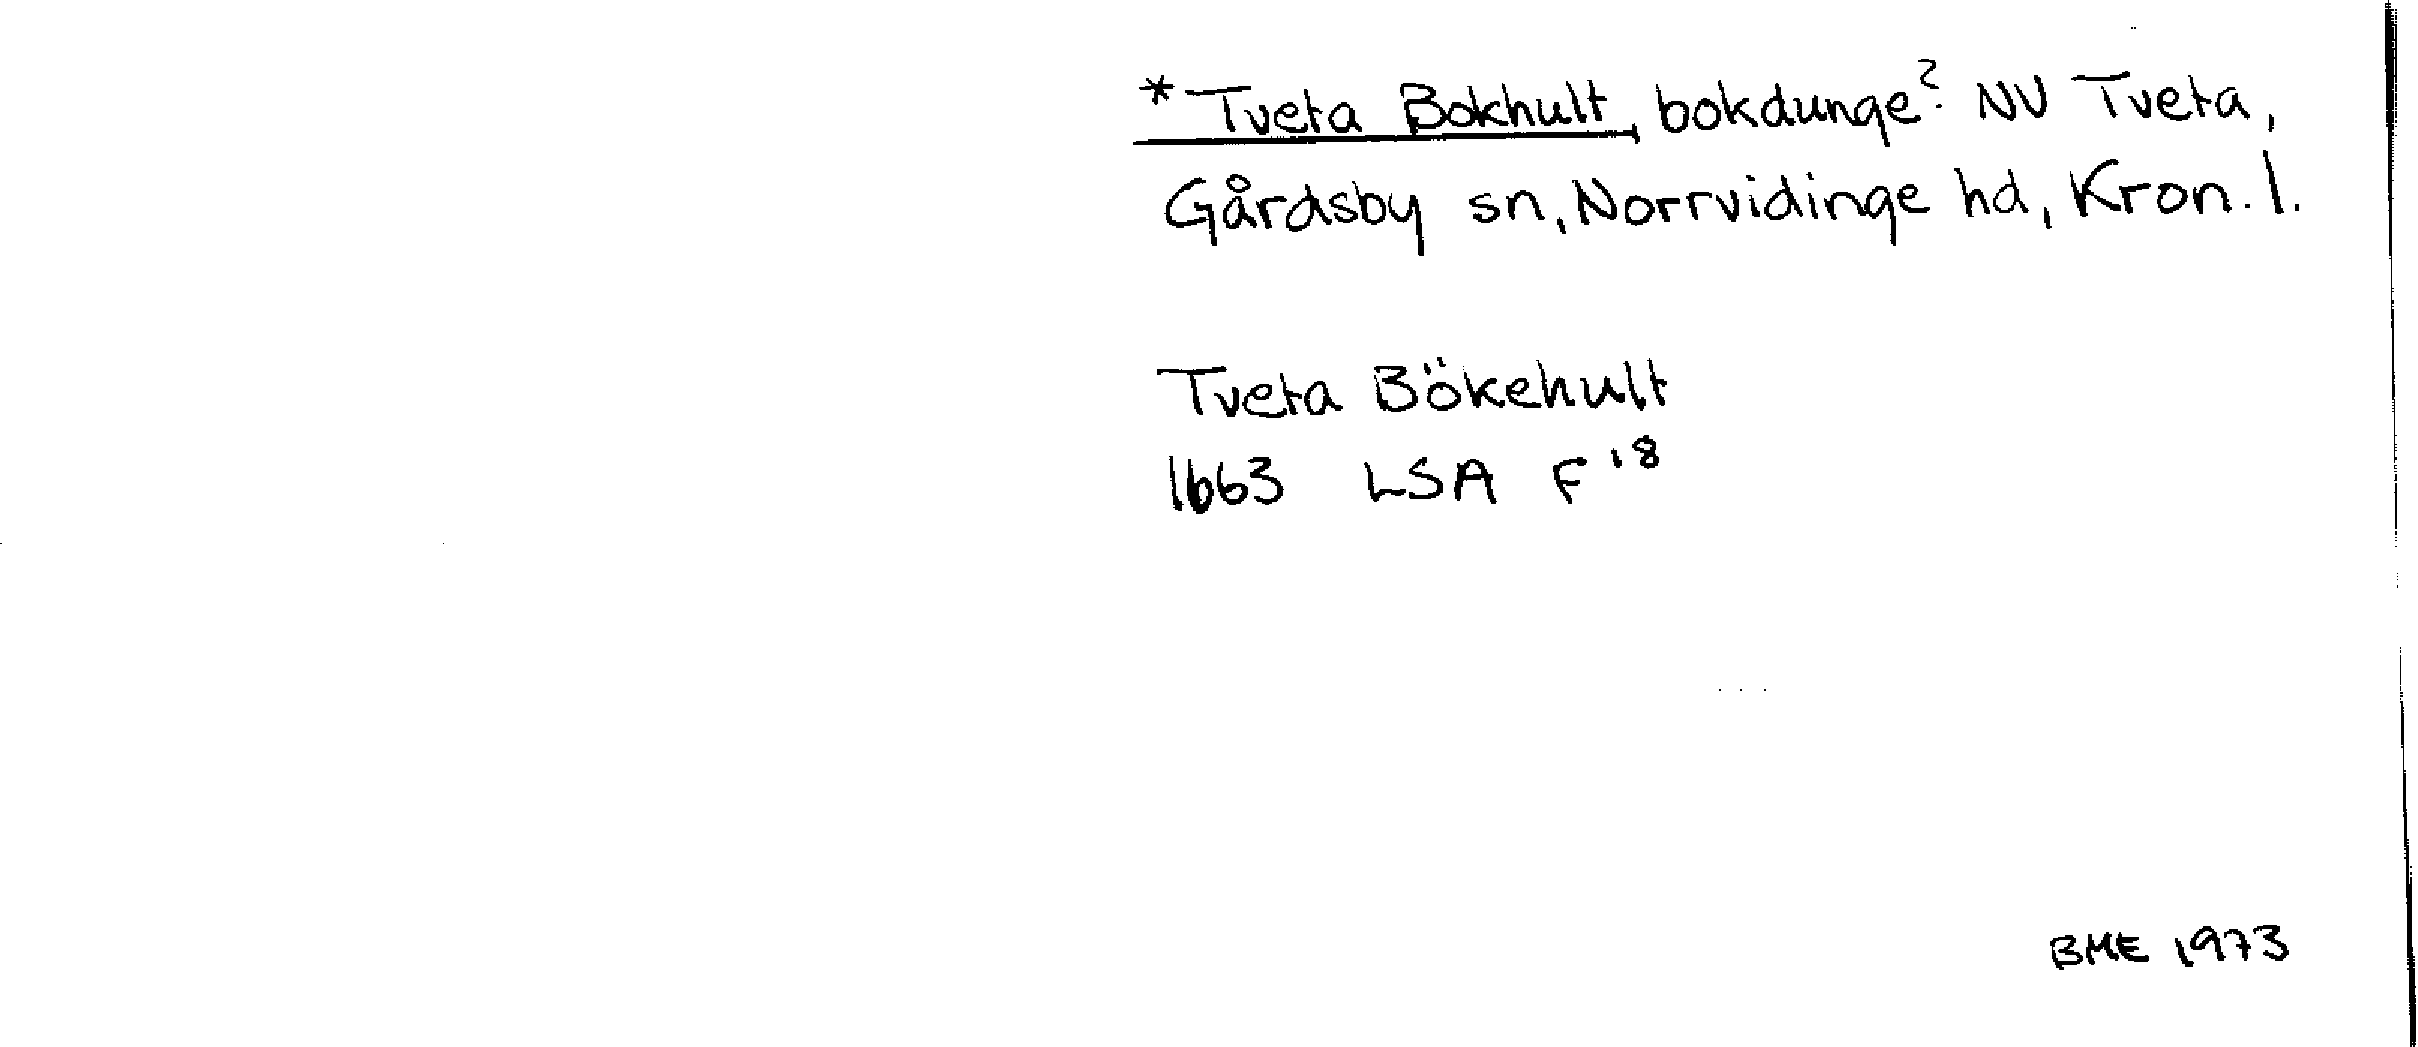 *Tveta Bokhult, bokdunge? NV Tveta,
Gårdsby sn, Norrvidinge hd, Kron. l.
Tveta Bökehult
1663 LSA F 18
BME 1973